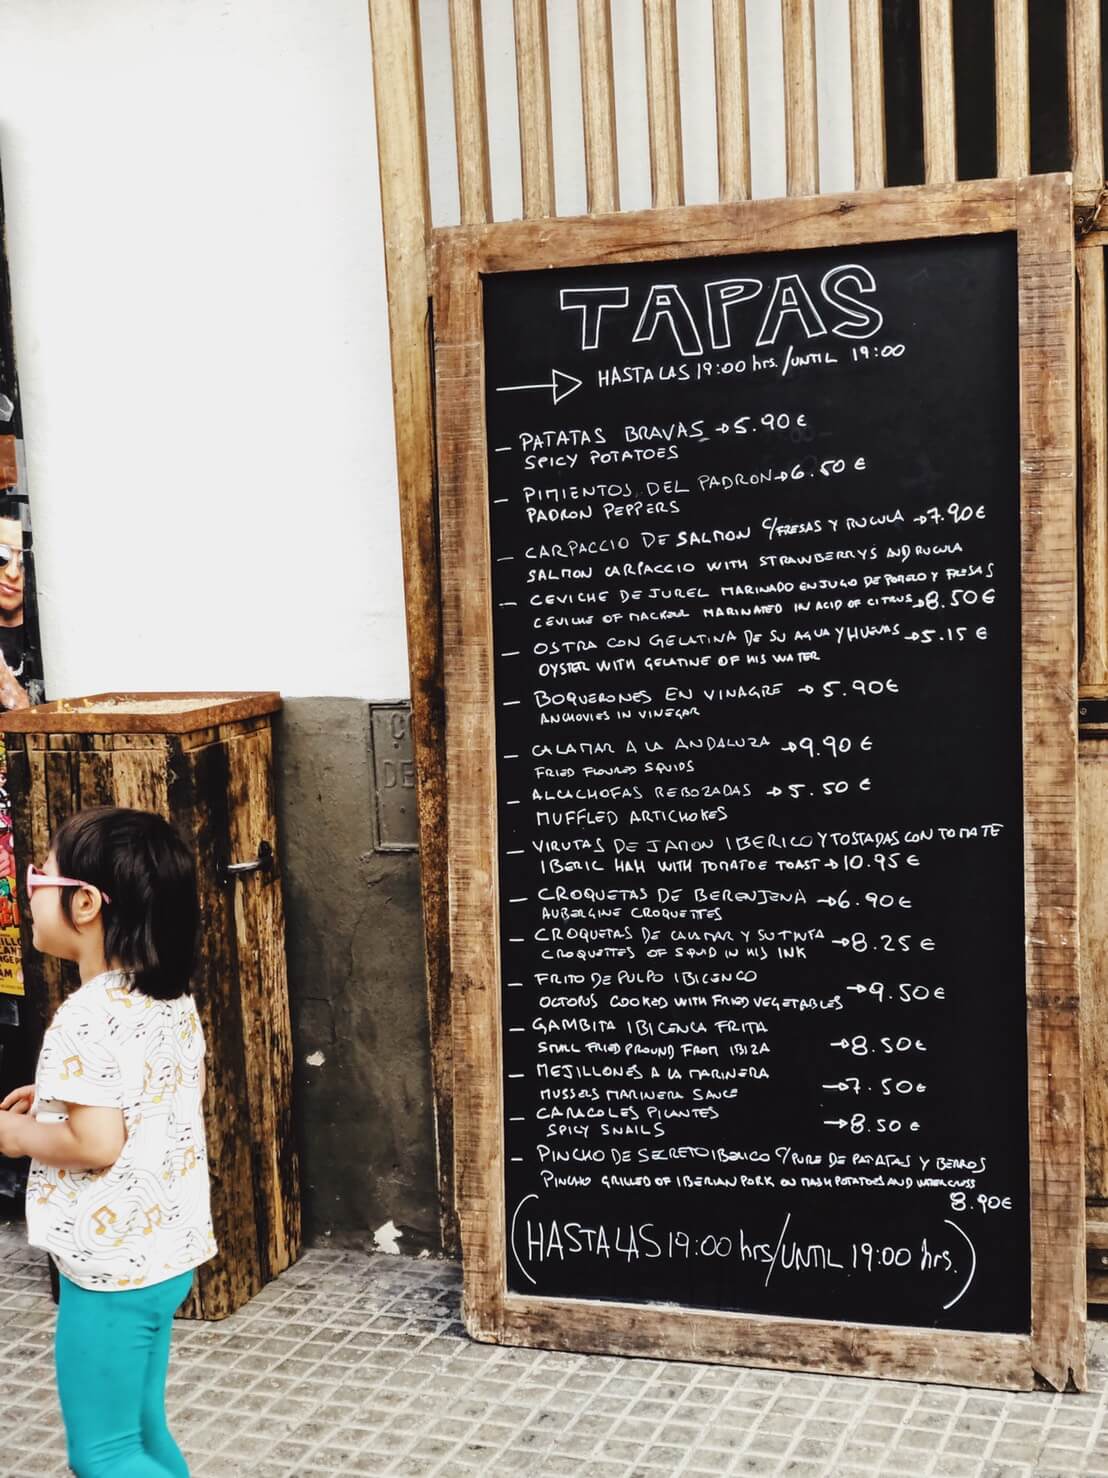 TAPAS
HASTA LAS 19:00 hrs./UNTIL 19:00
- PATATAS BRAVAS → 5.90€
SPICY POTATOES
- PIMIENTOS DEL PADRON → 6.50€
PADRON PEPPERS
- CARPACCIO DE SALMON C/FRESAS Y RUCULA → 7.90€
SALMON CARPACCIO WITH STRAWBERRYS AND RUCULA
- CEVICHE DE JUREL MARINADO EN JUGO DE POMELO Y FRESAS
CEVICHE OF MARINATED IN ACID OF CITRUS → 8.50€
- OSTRA CON GELATINA DE SU AGUA Y HUEVAS → 5.15€
OYSTER WITH GELATINE OF HIS WATER
- BOQUERONES EN VINAGRE → 5.90€
ANCHOVIES IN VINEGAR
- CALAMAR A LA ANDALUZA → 9.90€
FRIED FLOURED SQUIDS
- ALCACHOFAS REBOZADAS → 5.50€
MUFFLED ARTICHOKES
- VIRUTAS DE JAMON IBERICO Y TOSTADAS CON TOMATE
IBERIC HAM WITH TOMATOE TOAST → 10.95€
- CROQUETAS DE BERENJENA → 6.90€
AUBERGINE CROQUETTES
- CROQUETAS DE CALAMAR Y SU TINTA → 8.25€
CROQUETTES OF SQUID IN HIS INK
- FRITO DE PULPO IBICENCO
OCTOPUS COOKED WITH FRIED VEGETABLES → 9.50€
- GAMBITA IBICENCA FRITA
SMALL FRIED PROUND FROM IBIZA → 8.50€
- MEJILLONES A LA MARINERA
MUSSELS MARINERA SAUCE → 7.50€
- CARACOLES PICANTES
SPICY SNAILS → 8.50€
- PINCHO DE SECRETO IBERICO C/PURE DE PATATAS Y BERROS
PINCHO GRILLED OF IBERIAN PORK ON MASH POTATOES AND WATERCRESS
8.90€
(HASTA LAS 19:00 hrs/UNTIL 19:00 hrs.)